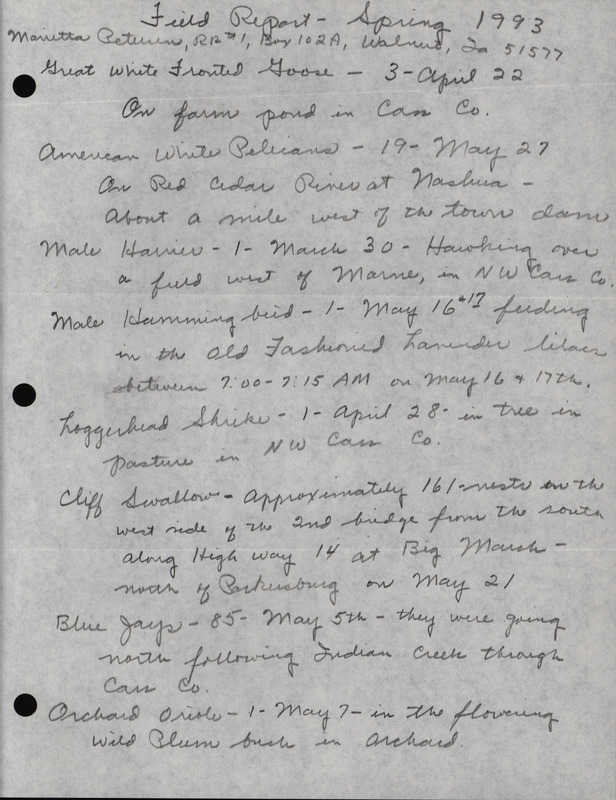 Field Report - Spring 1993
Marietta Petersen, RR#1, Box 102A, Walnut, Ia 51577
Great White Fronted Goose - 3 - April 22
On farm pond in Cass Co.
American White Pelicans - 19 - May 27
On Red Cedar River at Nashua -
About a mile west of the town dam
Male Harrier - 1 - March 30 - Hawking over
a field west of Marne, in NW Cass Co.
Male Hummingbird - 1 - May 16+17 feeding
in the Old Fashioned Lavender lilacs
between 7:00 - 7:15 AM on May 16 + 17th.
Loggerhead Shrike - 1 - April 28 - in tree in
pasture in NW Cass Co.
Cliff Swallow - Approximately 161 - nests on the
west side of the 2nd bridge from the south
along High way 14 at Big Marsh -
north of Parkersburg on May 21
Blue Jays - 85 - May 5th - they were going
north following Indian Creek through
Cass Co.
Orchard Oriole - 1 - May 7 - in the flowering
wild Plum bush in orchard.